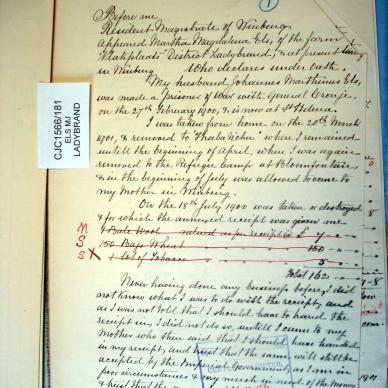 (1)
Before me
Resident Magistrate of Winburg.
Appeared Martha Magdalena Els, of the farm
"Vlakplaats" District Ladybrand, & at present living
in Winburg Who declares under oath.
My husband Johannes Marthinus Els,
was made a prisoner of War with General Cronje
on the 27th February 1900, & is now at St Helena.
I was taken from home on the 20th March
1901, & removed to Thaba'Nchu where I remained
until the beginning of April, when I was again
removed to the Refugee Camp at Bloemfontein
& in the beginning of July was allowed to come to
my Mother in Winburg.
On the 18th July 1900 was taken or destroyed
& for which the annexed receipt was given me
M 1 Bale Wool valued as per receipt is £ 7
S 150 Bags Wheat 150
S X 1 Lot of Tobacco 5
Total 162
Never having done any business before, I did
not know what I was to do with the receipt, and
as I was not told that I should have to hand the
receipt in, I did not do so, until I came to my
Mother who then said that I should have handed
in my receipt, and trust that the same will still be
accepted by the Imperial Government, as I am in
poor circumstances & my much in need of the money
& trust that the
CJC1566/181
ELS MJ
LADYBRAND